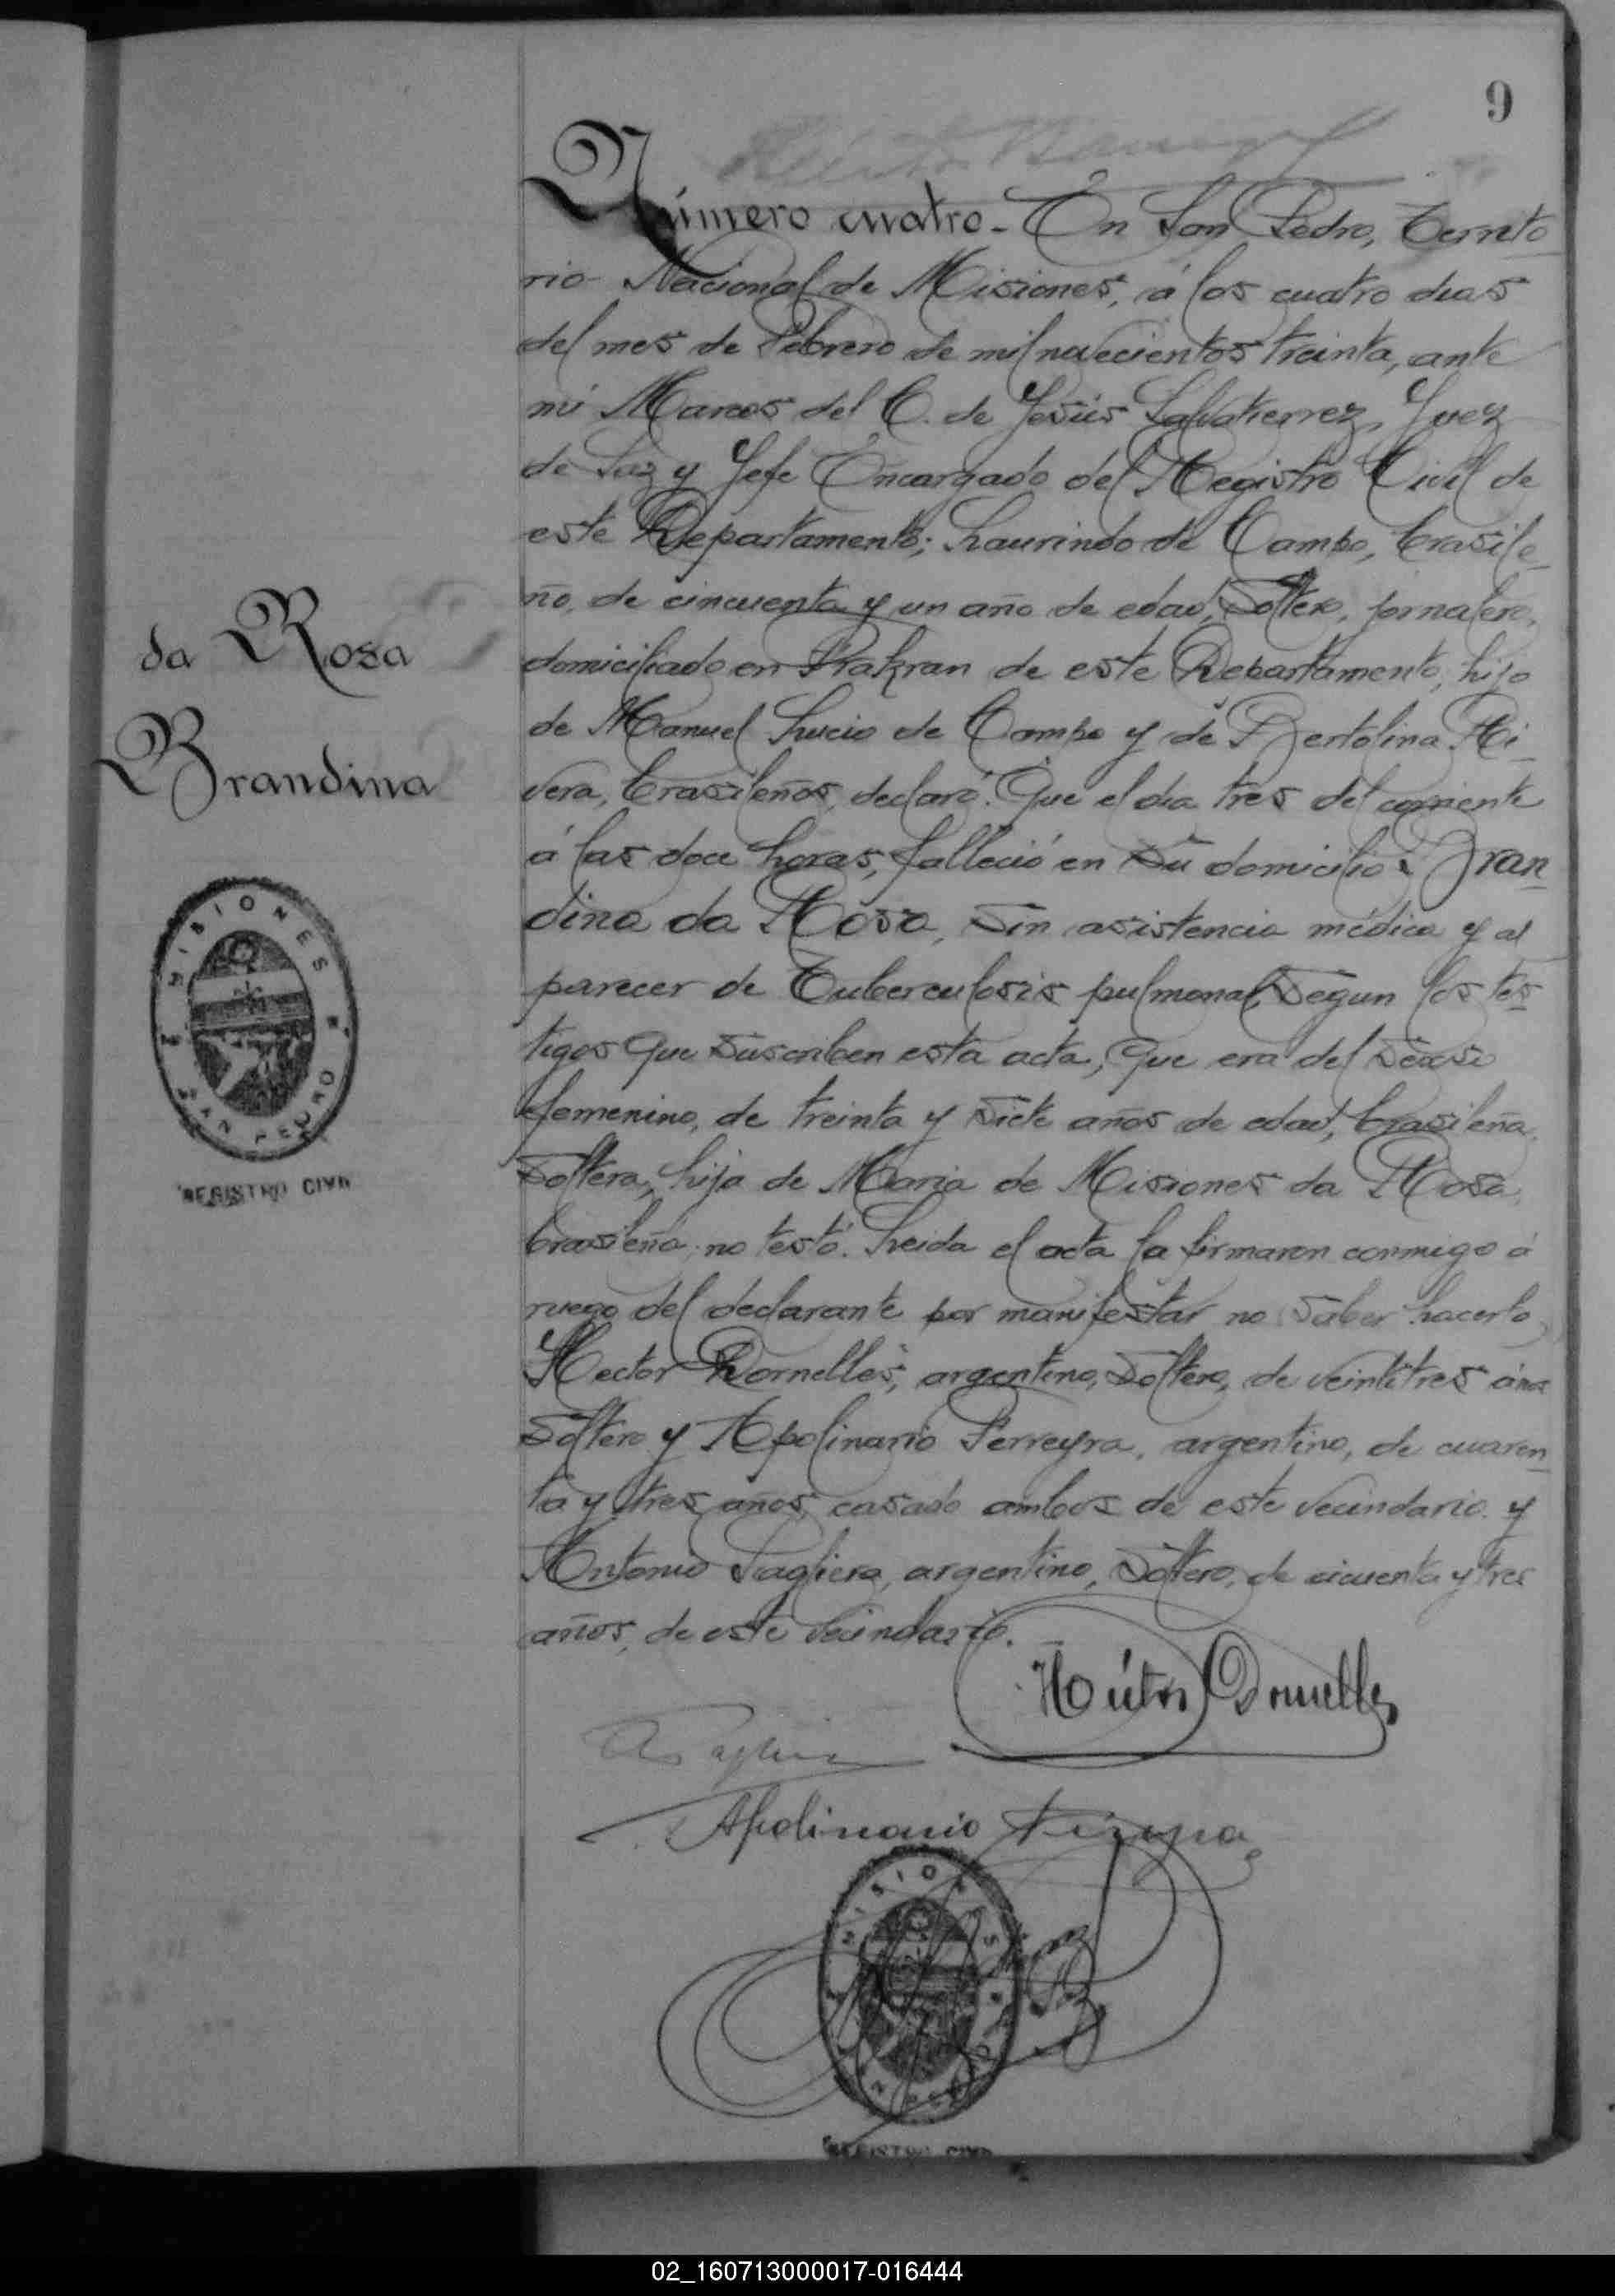 9
Número cuatro - En San Pedro, Territo
rio Nacional de Misiones, á los cuatro dias
del mes de Febrero de mil novecientos treinta, ante
mi Marcos del C. de Jesús Salvatierrez, Juez
de Paz y Jefe Encargado del Registro Civil de
este Departamento; Laurindo de Campo, brasile-
ño, de cincuenta y un año de edad, soltero, jornalero,
domiciliado en Frakran de este Departamento, hijo
de Manuel Lucio de Campo y de Bertolina Ri-
vera, brasileños, declaró: Que el dia tres del corriente
á las doce horas, falleció en su domicilio: Bran
dina da Rosa, sin asistencia médica y al
parecer de Tuberculosis pulmonal, segun los tes
tigos que suscriben esta acta, que era del sexo
femenino, de treinta y siete años de edad, brasileña,
soltera, hija de Maria de Misiones da Rosa,
brasileña, no testó. Leida el acta la firmaron conmigo á
ruego del declarante por manifestar no saber hacerlo,
Hector Dornelles, argentino, soltero, de veintitres años
soltero y Apolinario Ferreyra, argentino, de cuaren
ta y tres años, casado ambos de este vecindario y
Antonio Pagliera, argentino, soltero, de cicuenta y tres
años, de este vecindario.
da Rosa
Brandina
MISIONES
SAN PEDRO
REGISTRO CIVIL
Héctor Dornelles
Apolinario
MISIONES
REGISTRO CIVIL
02_160713000017-016444